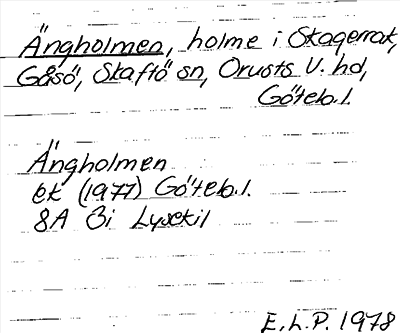 Ängholmen, holme i Skagerrak,
Gåsö, Skaftö sn, Orusts V. hd,
Göteb.l.
Ängholmen
ek (1977) Göteb.l.
8A 3i Lysekil
E.L.P. 1978